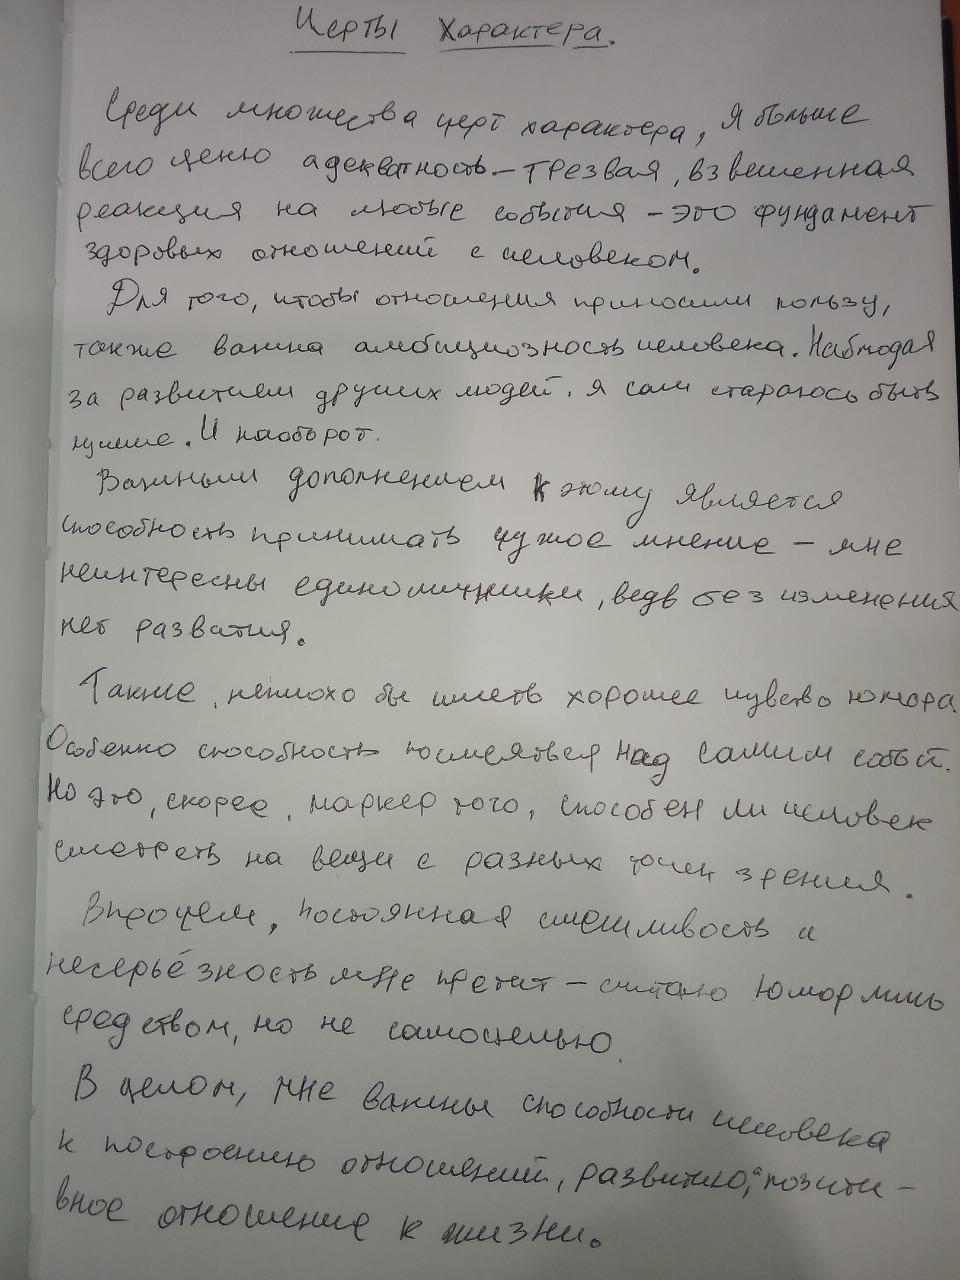 Черты характера.
Среди множества черт характера, я больше
всего ценю адекватность – трезвая, взвешенная
реакция на любые события – это фундамент
здоровых отношений с человеком.
Для того, чтобы отношения приносили пользу,
также важна амбициозность человека. Наблюдая
за развитием других людей, я сам стараюсь быть
лучше. И наоборот.
Важным дополнением к этому является
способность принимать чужое мнение – мне
неинтересны единомичники, ведь без изменения
нет развития.
Также, неплохо бы иметь хорошее чувство юмора
Особенно способность посмеяться над самим собой.
Но это, скорее, маркер того, способен ли человек
смотреть на вещи с разных точек зрения.
Впрочем, постоянная смешливость и
несерьёзность мне претит – считаю юмор лишь
средством, но не самоцелью.
В целом, мне важны способности человека
к построению отношений, развитию, а позити-
вное отношение к жизни.